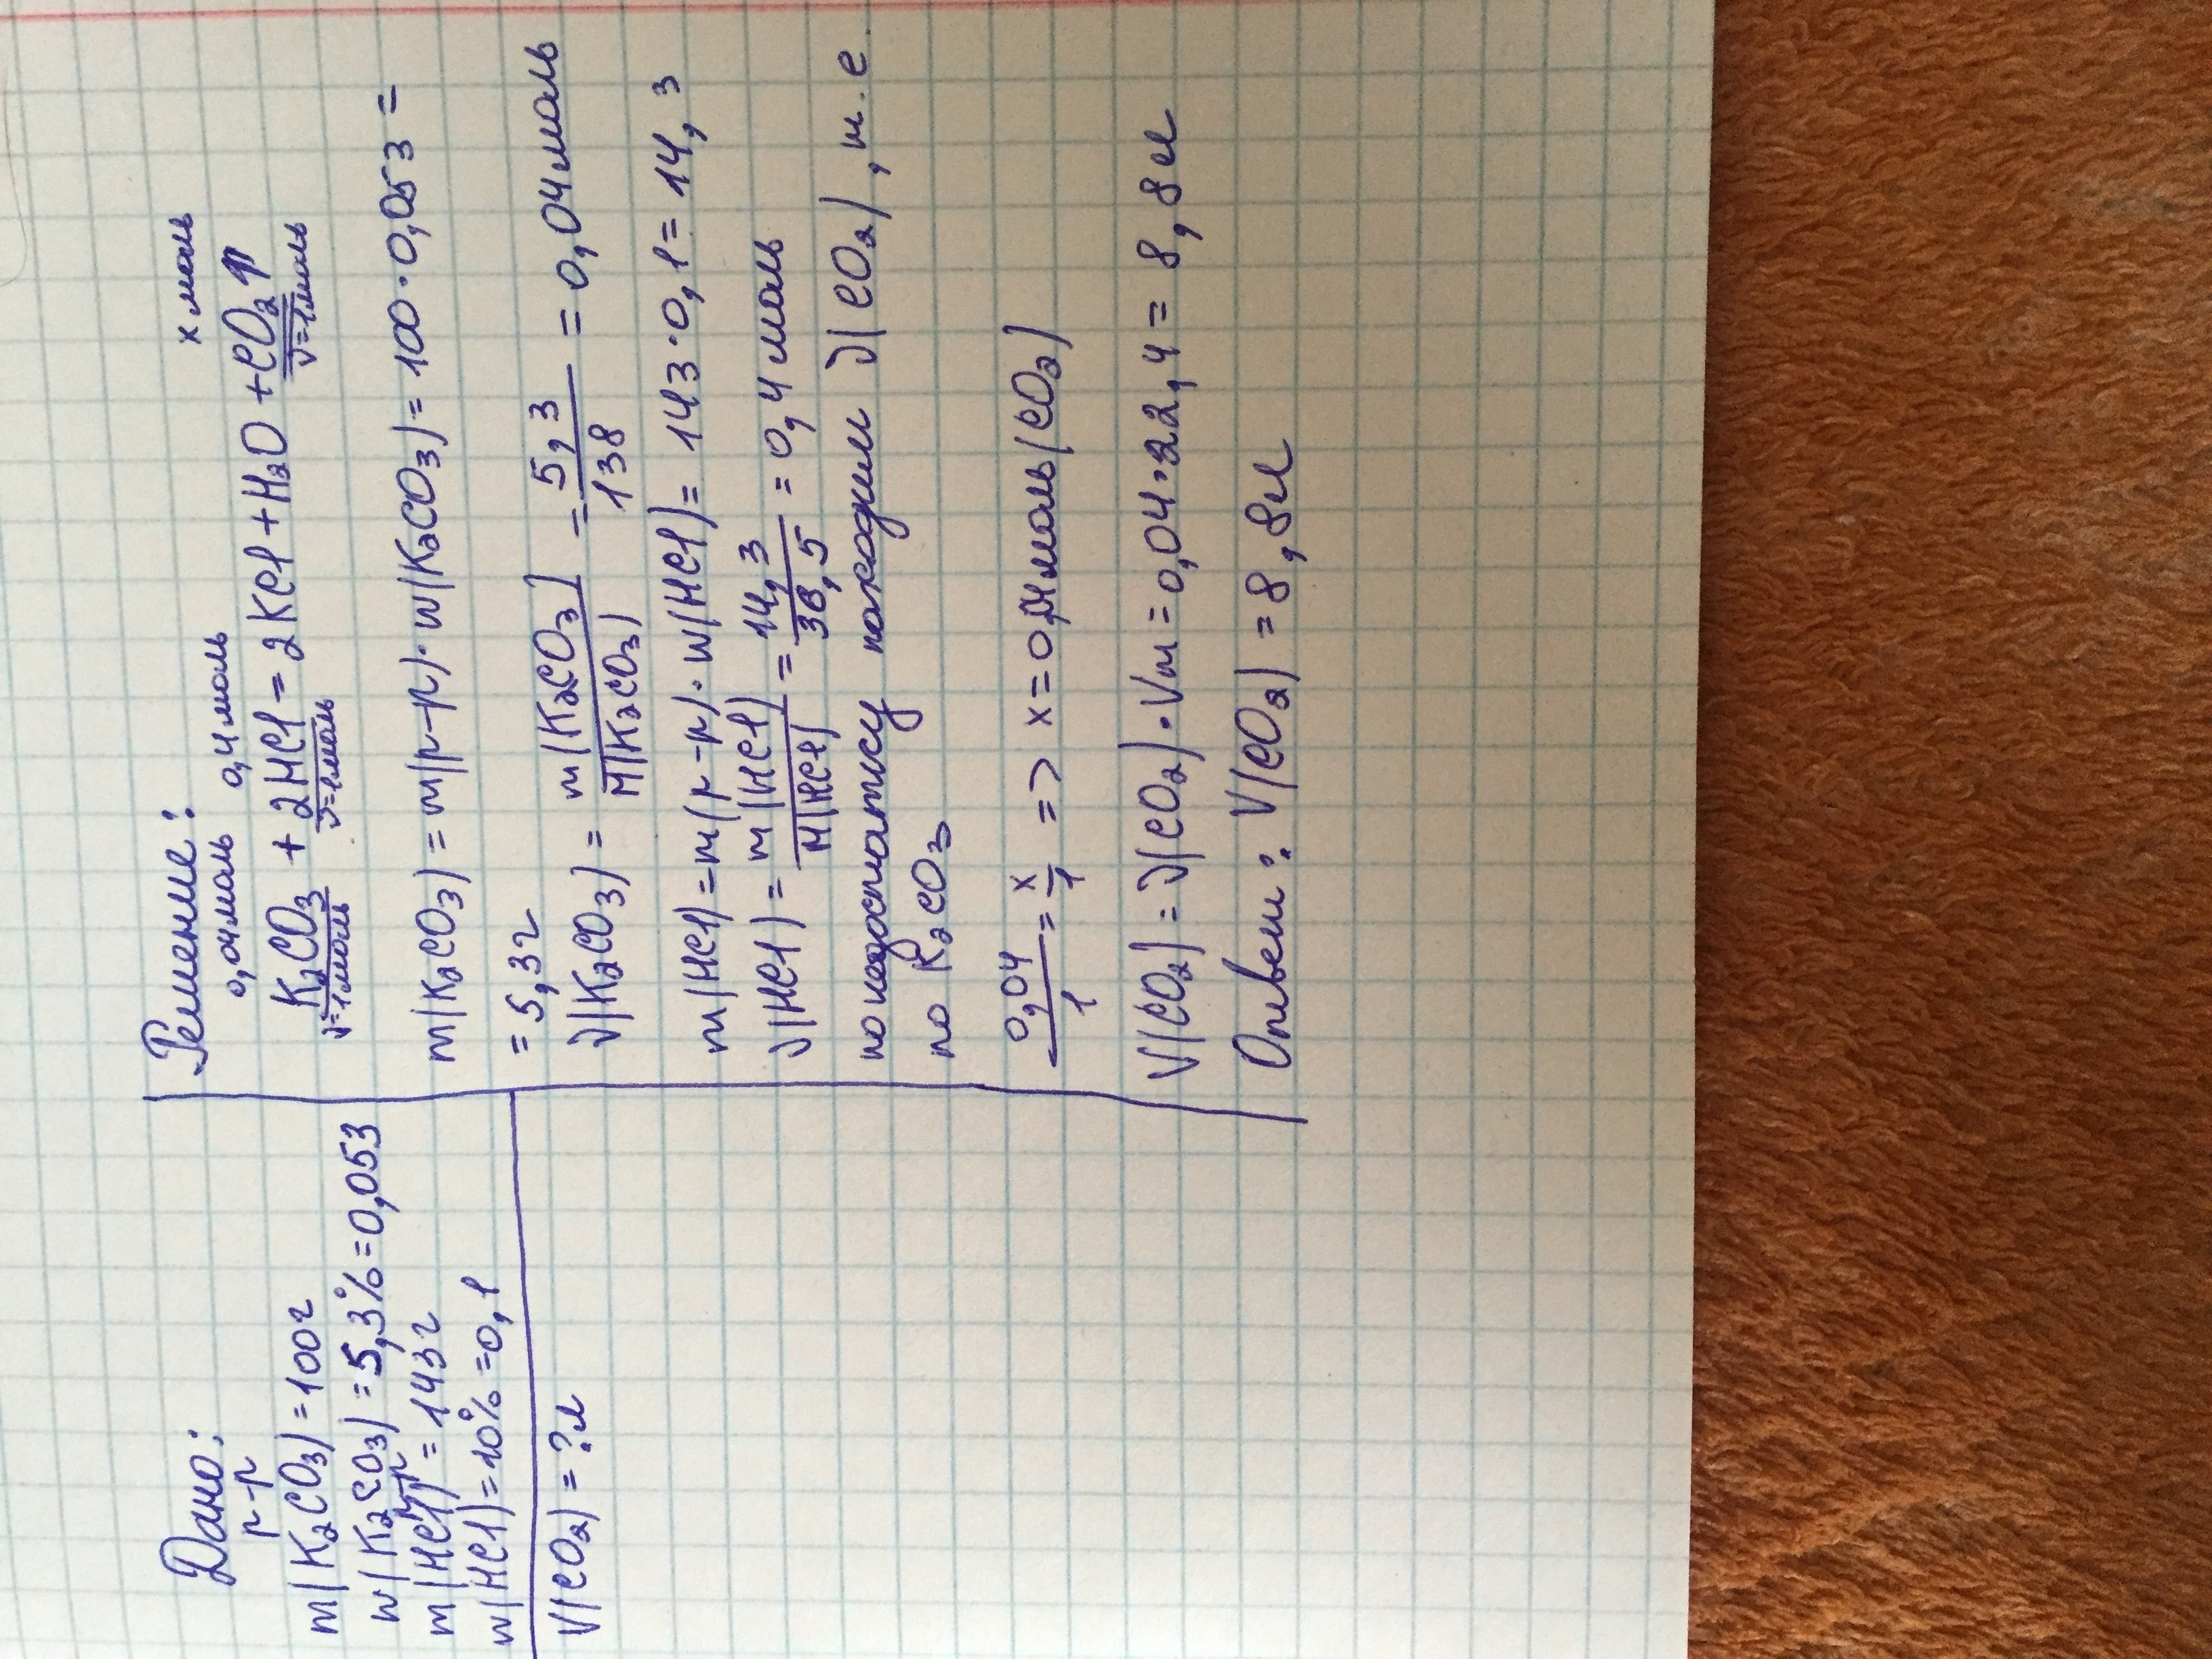 Дано:
р-р
m(K₂CO₃)=100г
w(K₂CO₃)=5,3%=0,053
р-р
m(HCl)=143г
w(HCl)=10%=0,1
V(CO₂)=?л
Решение:
0,04моль 0,4моль x моль
K₂CO₃ + 2HCl = 2KCl + H₂O + CO₂↑
ν=1моль ν=1моль ν=1моль
m(K₂CO₃)=m(р-р)·w(K₂CO₃)=100·0,053=
=5,3г
ν(K₂CO₃)= m(K₂CO₃)/M(K₂CO₃) = 5,3/138 = 0,04моль
m(HCl)=m(р-р)·w(HCl)=143·0,1=14,3
ν(HCl)= m(HCl)/M(HCl) = 14,3/36,5 = 0,4моль
по недостатку находим ν(CO₂), т.е.
по K₂CO₃
0,04/1 = x/1 => x=0,04моль(CO₂)
V(CO₂)=ν(CO₂)·Vm=0,04·22,4=8,8л
Ответ: V(CO₂)=8,8л